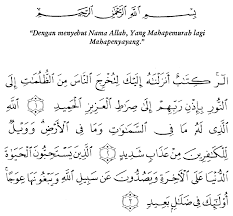 بِسْمِ ٱللَّهِ ٱلرَّحْمَٰنِ ٱلرَّحِيمِ
“Dengan menyebut Nama Allah, Yang Mahapemurah lagi
Mahapenyayang.”
الٓر ۚ كِتَٰبٌ أَنزَلْنَٰهُ إِلَيْكَ لِتُخْرِجَ ٱلنَّاسَ مِنَ ٱلظُّلُمَٰتِ إِلَى
ٱلنُّورِ بِإِذْنِ رَبِّهِمْ إِلَىٰ صِرَٰطِ ٱلْعَزِيزِ ٱلْحَمِيدِ ١ ٱللَّهِ
ٱلَّذِى لَهُۥ مَا فِى ٱلسَّمَٰوَٰتِ وَمَا فِى ٱلْأَرْضِ ۗ وَوَيْلٌ
لِّلْكَٰفِرِينَ مِنْ عَذَابٍ شَدِيدٍ ٢ ٱلَّذِينَ يَسْتَحِبُّونَ ٱلْحَيَوٰةَ
ٱلدُّنْيَا عَلَى ٱلْءَاخِرَةِ وَيَصُدُّونَ عَن سَبِيلِ ٱللَّهِ وَيَبْغُونَهَا عِوَجًا ۚ
أُو۟لَٰٓئِكَ فِى ضَلَٰلٍۭ بَعِيدٍ ٣